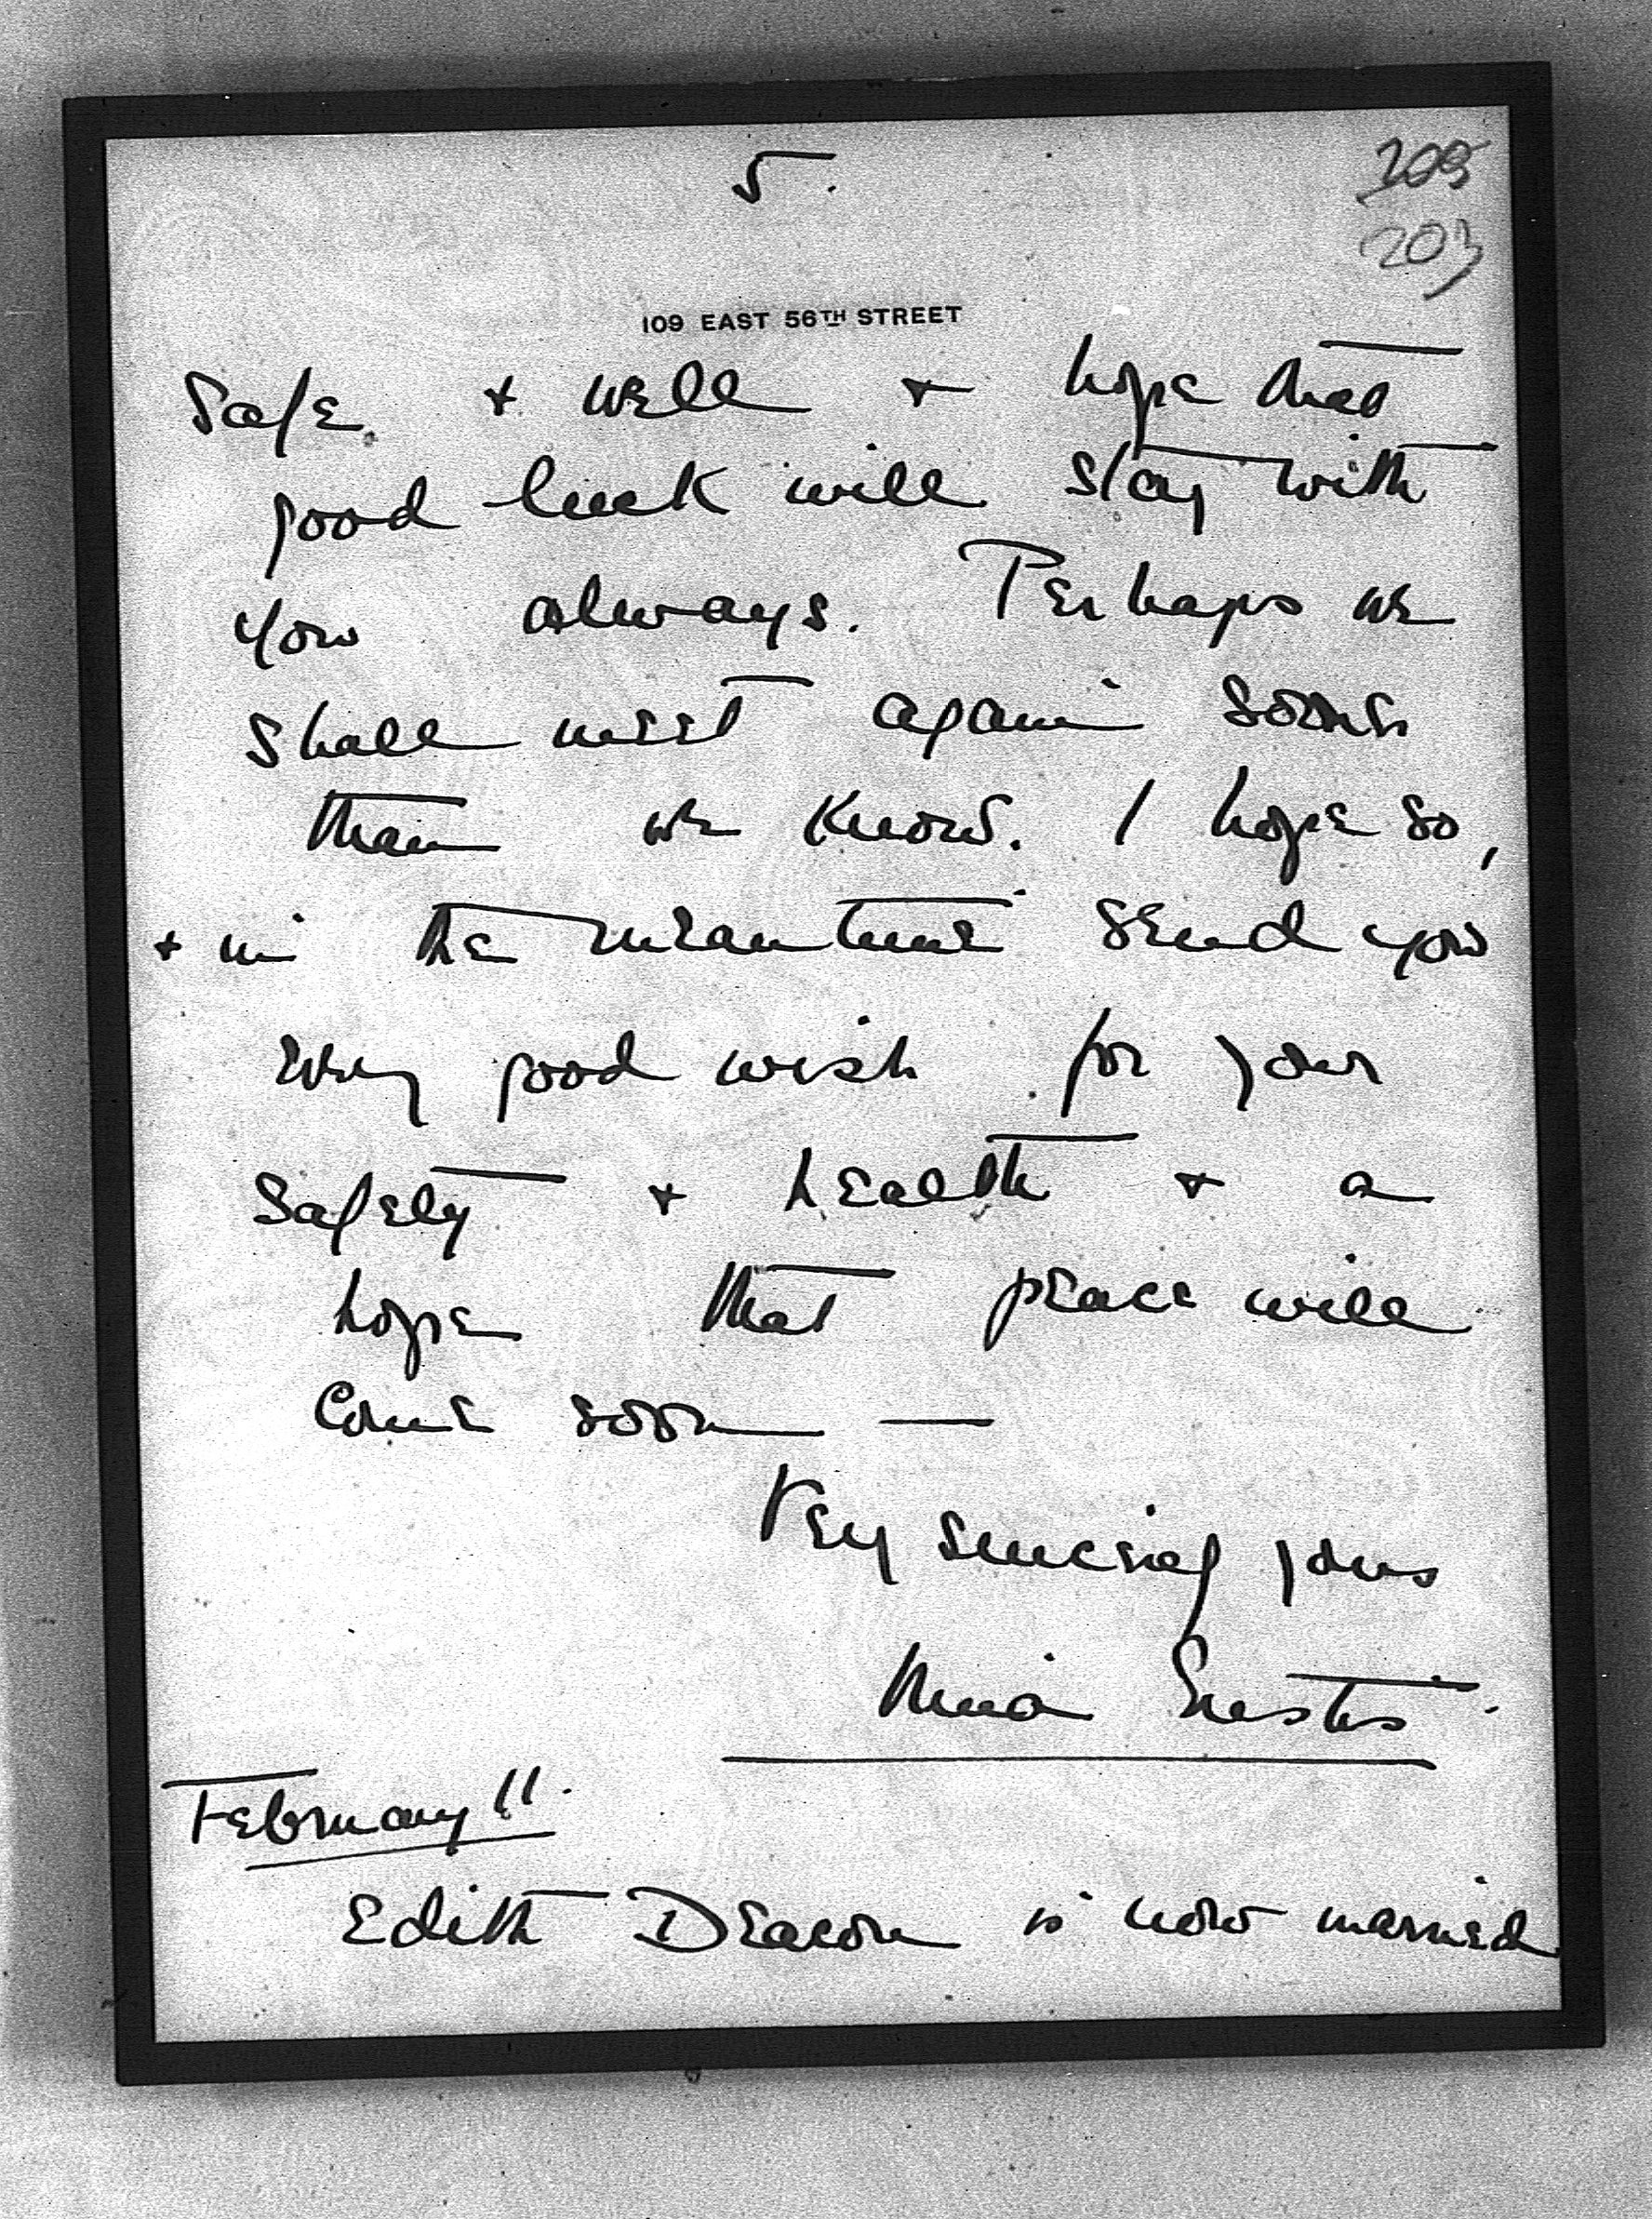 5.
205
203
109 EAST 56TH STREET
Safe + well + hope that
good luck will stay with
you always. Perhaps we
shall meet again sooner
than we know. I hope so,
+ in the meantime send you
every good wish for your
safety + health + a
hope that peace will
come soon —
Very sincerely yours
February 11.
Edith Deacon is now married